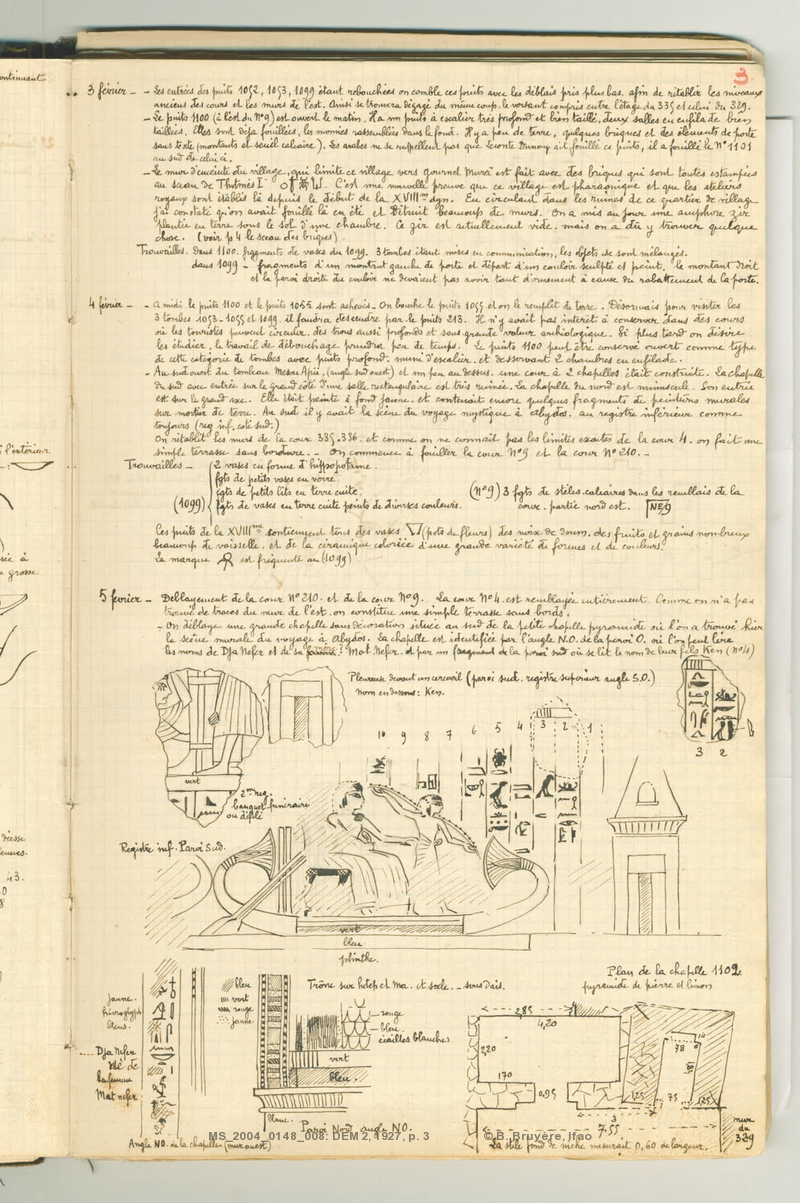 3
3 février — - Les entrées des puits 1052, 1053, 1099 étant rebouchées on comble ces puits avec les déblais pris plus bas, afin de rétablir les niveaux
anciens des cours et les murs de l'est. Ainsi se trouvera dégagé du même coup le versant compris entre l'étage du 335 et celui du 329.
- Le puits 1100 (à l'est du Nº9) est ouvert le matin. Il a un puits à escalier très profond et bien taillé, deux salles en enfilade bien
taillées. Elles sont déjà fouillées, les momies rassemblées dans le fond. Il y a peu de terre, quelques briques et des éléments de porte
sans texte (montants et seuil calcaire). Les arabes ne se rappellent pas que Leconte Dunouy ait fouillé ce puits, il a fouillé le Nº 1101
au sud de celui ci.
- Le mur d'enceinte du village, qui limite ce village vers Gournet Mura est fait avec des briques qui sont toutes estampées
au sceau de Thotmès I. C'est une nouvelle preuve que ce village est pharaonique et que les ateliers
royaux sont établis là depuis le début de la XVIIIème dyn. En circulant dans les ruines de ce quartier de village
j'ai constaté qu'on avait fouillé là en été et détruit beaucoup de murs. On a mis au jour une amphore zir
plantée en terre sous le sol d'une chambre. Ce zir est actuellement vide, mais on a dû y trouver quelque
chose. (voir p 4 le sceau des briques)
Trouvailles. Dans 1100. fragments de vases du 1099. 3 tombes étant mises en communication, les objets se sont mélangés.
dans 1099 - fragments d'un montant gauche de porte et départ d'un couloir sculpté et peint. le montant droit
et la paroi droite du couloir ne devaient pas avoir tant d'ornement à cause du rabattement de la porte.
4 février — - A midi le puits 1100 et le puits 1055 sont achevés. On bouche le puits 1055 et on le remplit de terre. Désormais pour visiter les
3 tombes 1053 - 1055 et 1099. il faudra descendre par le puits 213. Il n'y avait pas intérêt à conserver dans des cours
où les touristes peuvent circuler, des trous aussi profonds et sans grande valeur archéologique. Si plus tard on désire
les étudier, le travail de débouchage prendra peu de temps. Le puits 1100 peut être conservé ouvert comme type
de cette catégorie de tombes avec puits profond, muni d'escalier, et desservant 2 chambres en enfilade.
- Au sud ouest du tombeau (angle sud ouest) et un peu au dessus, une cour à 2 chapelles était construite. La chapelle
du sud avec entrée sur le grand côté d'une salle rectangulaire est très ruinée. La chapelle du nord est minuscule. Son entrée
est sur le grand axe. Elle était peinte à fond jaune et contenait encore quelques fragments de peintures murales
sur mortier de terre. Au sud il y avait la scène du voyage mystique à Abydos, au registre inférieur comme
toujours (reg. inf. côté sud.)
On rétablit les murs de la cour 335.336. et comme on ne connait pas les limites exactes de la cour 4. on fait une
simple terrasse sans bordure. - On commence à fouiller la cour Nº9 et la cour Nº 210. -
Trouvailles — 2 vases en forme d'hippopotame.
fgts de petits vases en verre.
fgts de petits lits en terre cuite.
(1099) fgts de vases en terre cuite peints de diverses couleurs.
(Nº9) 3 fgts de stèles calcaires dans les remblais de la
cour, partie nord est. NE9
Ces puits de la XVIIIème contiennent tous des vases (pots de fleurs) des noix de doum, des fruits et grains nombreux
beaucoup de vaisselle et de la céramique coloriée d'une grande variété de formes et de couleurs.
La marque est fréquente au (1099)
5 février — Déblayement de la cour Nº210 et de la cour Nº9. La cour Nº4 est remblayée entièrement. Comme on n'a pas
trouvé de traces du mur de l'est, on constitue une simple terrasse sans bords.
- On déblaye une grande chapelle sans décoration située au sud de la petite chapelle pyramide où l'on a trouvé hier
la scène murale du voyage à Abydos. La chapelle est identifiée par l'angle N.O. de la paroi O. où l'on peut lire
les noms de Dja Nefer et de sa femme: Mat Nefer. et par un fragment de la paroi sud où se lit le nom de leur fils Ken (Nº4)
Pleureuse devant un cercueil (paroi sud. registre supérieur angle S.O.)
nom en dessous: Ken.
3 2
10 9 8 7 6 5 4 3 2 1
vert
2me reg.
banquet funéraire
ou défilé
Registre inf. Paroi Sud.
vert
bleu
plinthe.
jaune.
hiéroglyph
bleus.
Dja Nefer
et de
la femme
Mat nefer
Angle NO. de la chapelle (mur ouest)
bleu
vert
rouge
jaune
Trône sur hotep et Ma. et socle. - sous Dais.
rouge
bleu
écailles blanches
vert
bleu.
blanc.
Paroi Nord, angle NO.
Plan de la chapelle 1102
pyramide de pierre et limon
2,85
4,20
2,20
170
0,95
78
14
125
75
125
3
7.55
mur
du
329
La stèle fond de niche mesurait 0,60 de largeur.
MS_2004_0148_008: DEM 2, 1927, p. 3
© B. Bruyère, Ifao
ontinuant
l'extérieur
sée à
grosse
43.